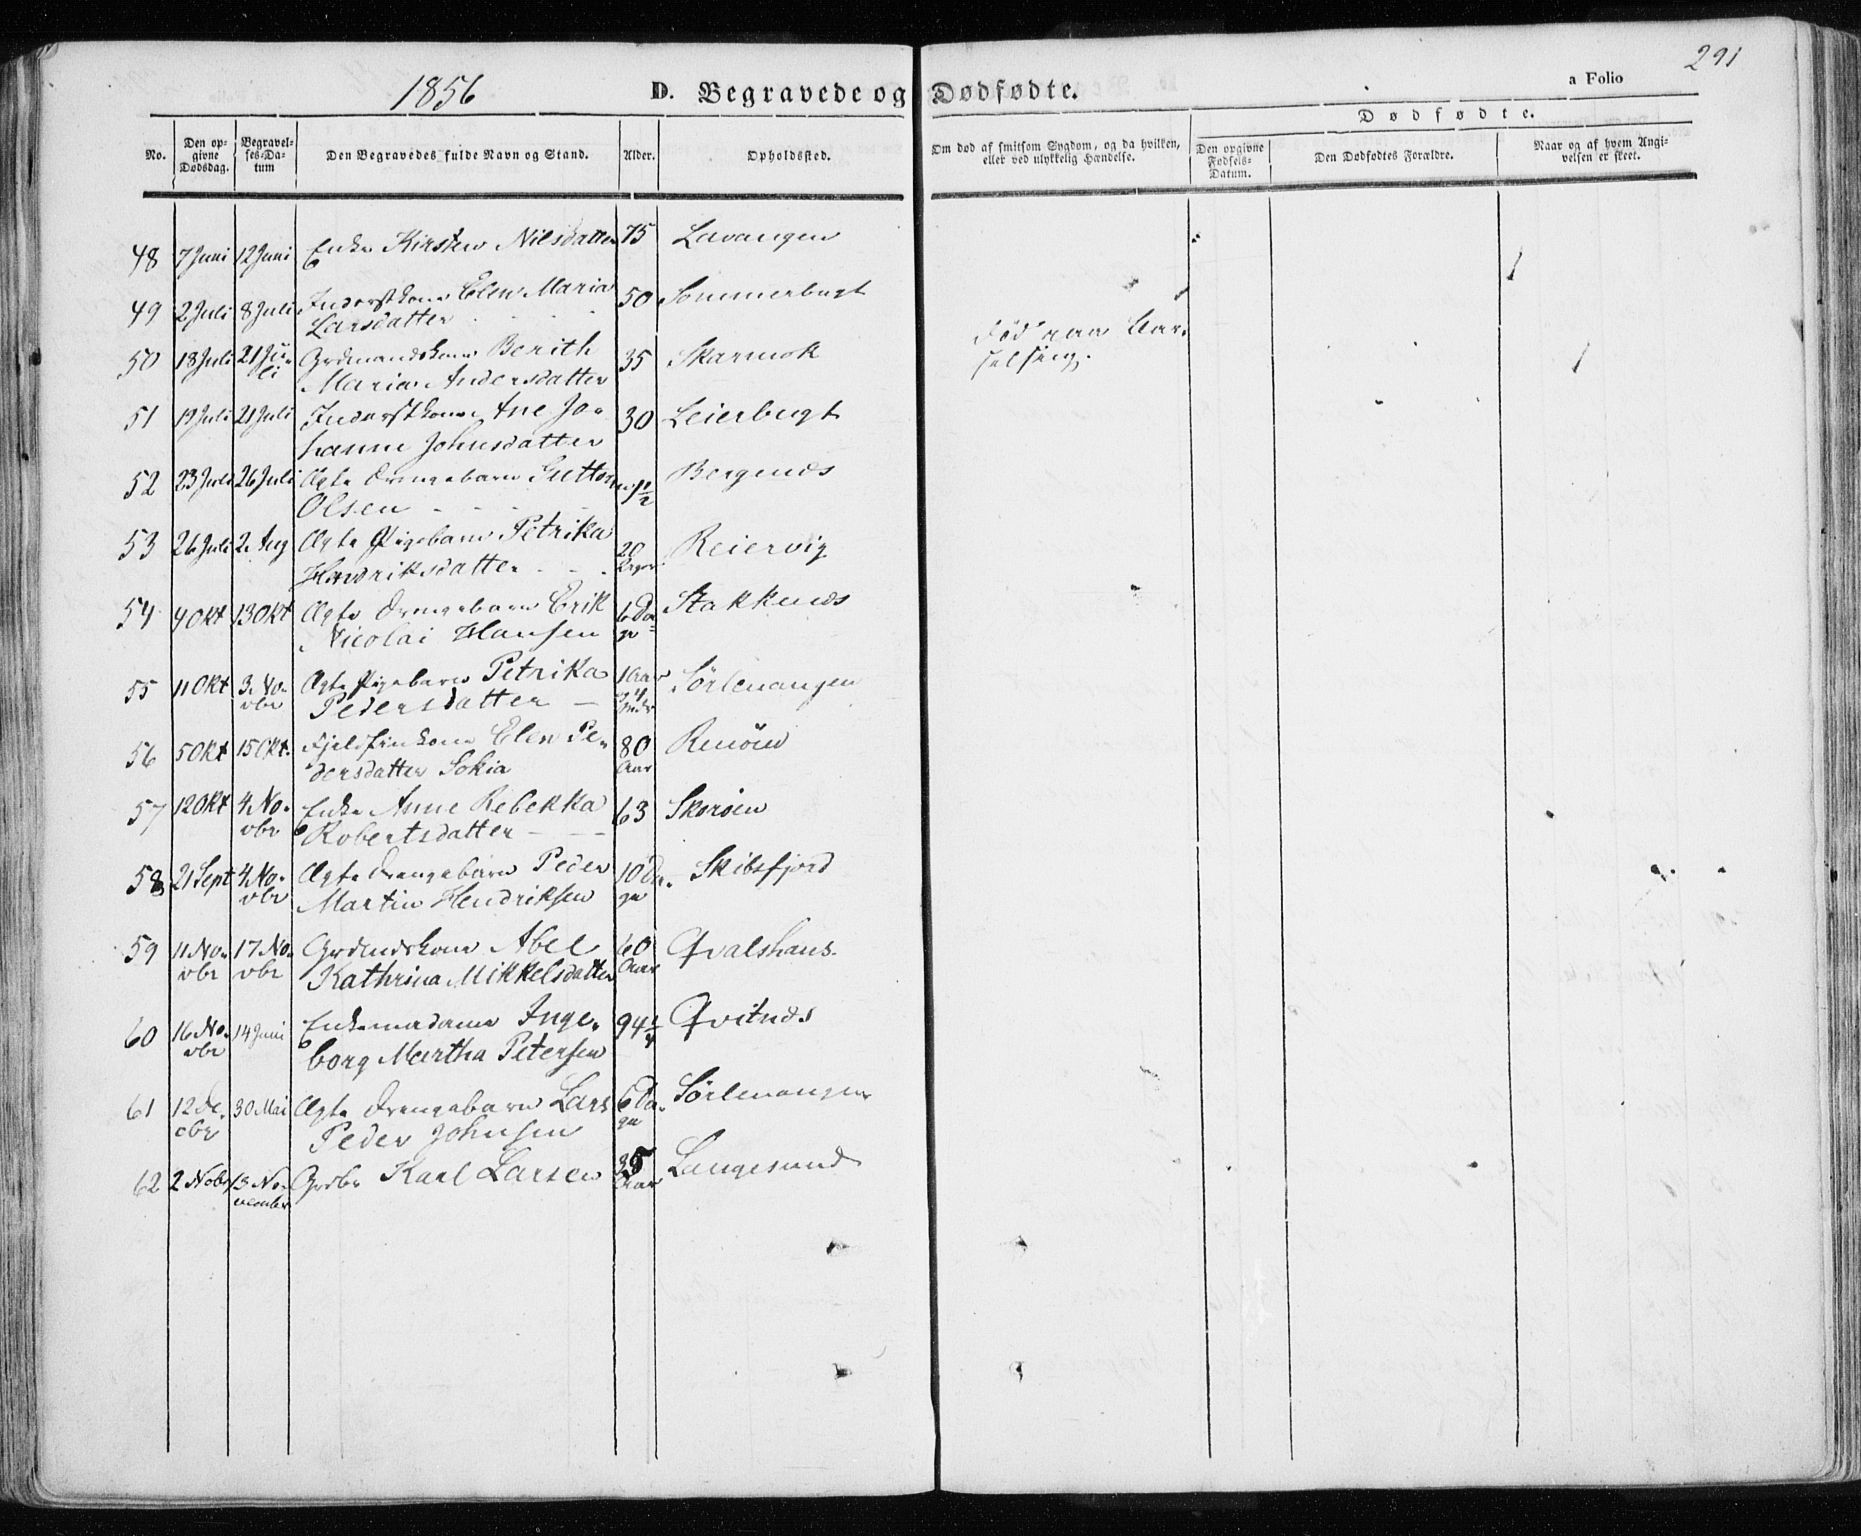 291
1856 D. Begravede og Dødfødte. a Folio
Dødfødte.
No. Den opgivne Dødsdag. Begravelses-Datum Den Begravedes fulde Navn og Stand. Alder. Opholdssted. Om død af smitsom Sygdom, og da hvilken, eller ved ulykkelig Hændelse. Den opgivne Fødsels-Datum. Den Dødfødtes Forældre. Naar og af hvem Angivelsen er skeet.
48 7 Juni 12 Juni Enke Kirsten Nilsdatter 75 Lavangen
49 2 Juli 8 Juli Inderstkone Elen Maria 50 Sommerbugt
Larsdatter
50 18 Juli 21 Juli Grdmandskone Berith 35 Skarmok Død paa Barselseng.
Maria Andersdatter
51 19 Juli 21 Juli Inderstkone Ane Jo- 30 Leierbugt
hanne Johnsdatter
52 23 Juli 26 Juli Ægte Drengebarn Guttorm 1/2 Bergnæs
Olsen
53 26 Juli 2 Aug Ægte Pigebarn Petrika 20 Reiervig
Hendriksdatter
54 4 Okt 13 Okt Ægte Drengebarn Erik 6 Dage Stakknæs
Nicolai Hansen
55 11 Okt 3 Novbr Ægte Pigebarn Petrika 1 Aar Sörlenangen
Pedersdatter
56 5 Okt 15 Okt. Fjeldfinkone Elen Pe- 80 Aar Renöen
dersdatter Sokia
57 12 Okt 4 Novbr Enke Anne Rebekka 63 Skoröen
Robertsdatter
58 21 Sept 4 Novbr Ægte Drengebarn Peder 10 Dage Skibsfjord
Martin Hendriksen
59 11 Novbr 17 Novbr Grdmdskone Abel 60 Aar Qvalshaus
Kathrina Mikkelsdatter
60 16 Novbr 14 Juni Enkemadame Inge- 94 1/4 Qvitnæs
borg Martha Petersen
61 12 Decbr 30 Mai Ægte Drengebarn Lars 6 Dage Sörlenangen
Peder Johnsen
62 2 Nobr 13 November Grdbr Karl Larsen 35 Aar Langesund